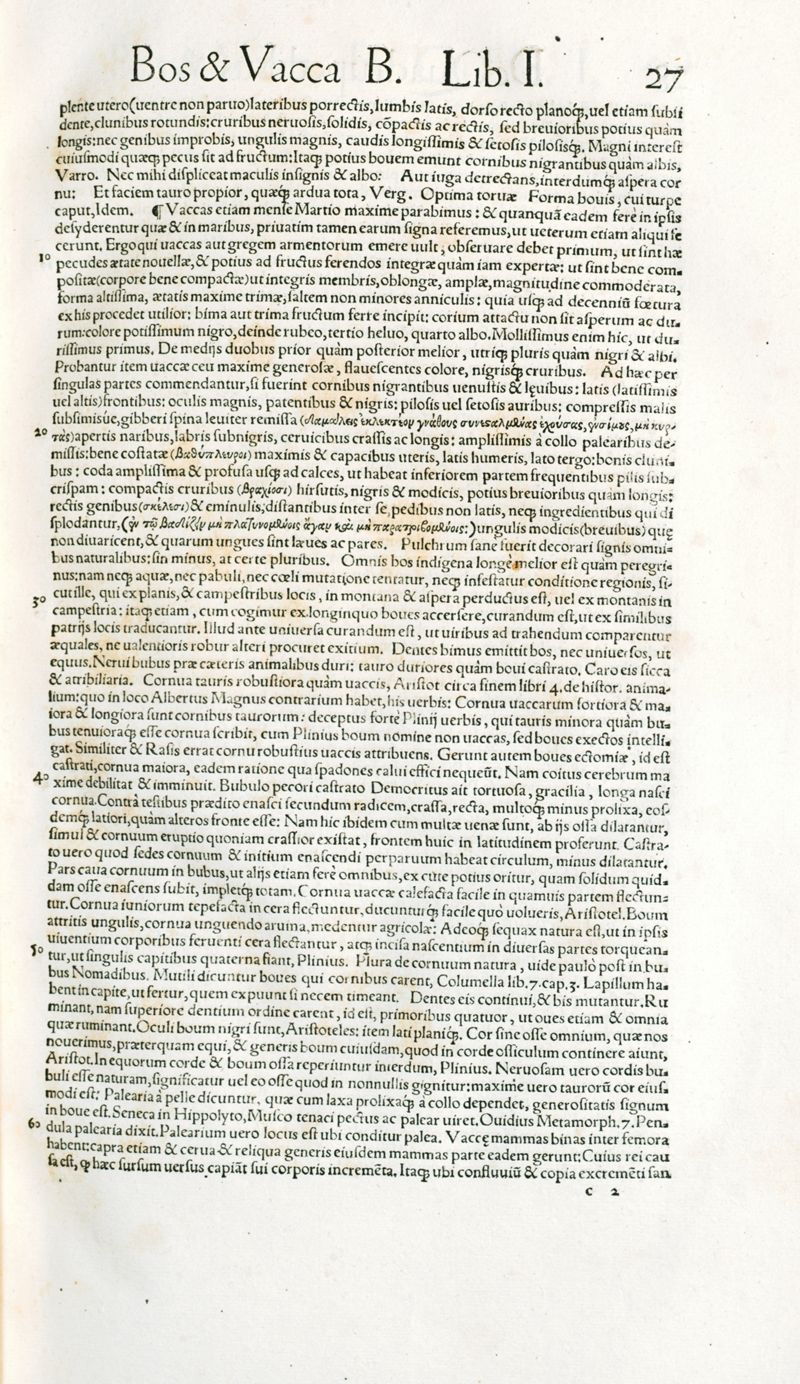 Bos & Vacca B. Lib. I. 27
plente utero (uentre non paruo) lateribus porrectis, lumbis latis, dorso recto planoq́;, uel etiam subsi
dente, clunibus rotundis: cruribus neruosis, solidis, cõpactis ac rectis, sed breuioribus potius quàm
longis: nec genibus improbis, ungulis magnis, caudis longissimis & setosis pilosisq́;. Magni interest
cuiusmodi quæq́; pecus sit ad fructum: Itaq́; potius bouem emunt cornibus nigrantibus quàm albis,
Varro. Nec mihi displiceat maculis insignis & albo: Aut iuga detrectans, interdumq́; aspera cor
nu: Et faciem tauro propior, quæq́; ardua tota, Verg. Optima toruæ Forma bouis, cui turpe
caput, Idem. ¶ Vaccas etiam mense Martio maxime parabimus: & quanquã eadem ferè in ipsis
desyderentur quæ & in maribus, priuatim tamen earum signa referemus, ut ueterum etiam aliqui fe
cerunt. Ergo qui uaccas aut gregem armentorum emere uult, obseruare debet primum, ut sint hæ
10 pecudes ætate nouellæ, & potius ad fructus ferendos integræ quàm iam expertæ: ut sint bene com-
positæ (corpore bene compactæ) ut integris membris, oblongæ, amplæ, magnitudine commoderata,
forma altissima, ætatis maxime trimæ, saltem non minores anniculis: quia usq́; ad decenniũ fœtura
ex his procedet utilior: bima aut trima fructum ferre incipit: corium attactu non sit asperum ac du-
rum: colore potissimum nigro, deinde rubeo, tertio heluo, quarto albo. Mollissimus enim hic, ut du-
rissimus primus. De medijs duobus prior quàm posterior melior, utriq́; pluris quàm nigri & albi.
Probantur item uaccæ ceu maxime generosæ, flauescentes colore, nigrisq́; cruribus. Ad hæc per
singulas partes commendantur, si fuerint cornibus nigrantibus uenustis & lęuibus: latis (latissimis
uel altis) frontibus: oculis magnis, patentibus & nigris: pilosis uel setosis auribus: compressis malis
subsimisúe, gibberi spina leuiter remissa (δαμάλεις ἐκλεκτέον γνάθους συνεσταλμένας ἐχούσας, μὴ κυρ-
20 τάς) apertis naribus, labris subnigris, ceruicibus crassis ac longis: amplissimis à collo palearibus de-
missis: bene costatæ (βαθύπλευροι) maximis & capacibus uteris, latis humeris, lato tergo: bonis cluni-
bus: coda amplissima & profusa usq́; ad calces, ut habeat inferiorem partem frequentibus pilis sub-
crispam: compactis cruribus (βραχίοσι) hirsutis, nigris & modicis, potius breuioribus quàm longis:
rectis genibus (σκέλεσι) & eminulis, distantibus inter se, pedibus non latis, neq́; ingredientibus qui di
splodantur, (ἐν τῷ βαδίζειν μὴ πλατυνομένοις ἄγαν καὶ μὴ παρατριβομένοις:) ungulis modicis (breuibus) quę
non diuaricent, & quarum ungues sint læues ac pares. Pulchrum sanè fuerit decorari signis omni-
bus naturalibus: sin minus, at certe pluribus. Omnis bos indigena longè melior est quàm peregri-
nus: nam neq́; aquæ, nec pabuli, nec cœli mutatione tentatur, neq́; infestatur conditione regionis, si-
30 cut ille, qui ex planis, & campestribus locis, in montana & aspera perductus est, uel ex montanis in
campestria: itaq́; etiam, cum cogimur ex longinquo boues accersere, curandum est, ut ex similibus
patrijs locis traducantur. Illud ante uniuersa curandum est, ut uiribus ad trahendum comparentur
æquales, ne ualentioris robur alteri procuret exitium. Dentes bimus emittit bos, nec uniuersos, ut
equus. Nerui bubus præ cæteris animalibus duri: tauro duriores quàm boui castrato. Caro eis sicca
& atribiliaria. Cornua tauris robustiora quàm uaccis, Aristot circa finem libri 4. de histor. anima-
lium: quo in loco Albertus Magnus contrarium habet, his uerbis: Cornua uaccarum fortiora & ma-
iora & longiora sunt cornibus taurorum: deceptus fortè Plinij uerbis, qui tauris minora quàm bu-
bus tenuioraq́; esse cornua scribit, cum Plinius boum nomine non uaccas, sed boues exectos intelli-
gat. Similiter & Rasis errat cornu robustius uaccis attribuens. Gerunt autem boues ectomiæ, id est
castrati, cornua maiora, eadem ratione qua spadones calui effici nequeũt. Nam coitus cerebrum ma
40 xime debilitat & imminuit. Bubulo pecori castrato Democritus ait tortuosa, gracilia, longa nasci
cornua. Contrà testibus prædito enasci secundum radicem, crassa, recta, multoq́; minus prolixa, eos-
demq́; latiori, quàm alteros fronte esse: Nam hic ibidem cum multæ uenæ sunt, ab ijs ossa dilatantur,
simul & cornuum eruptio quoniam crassior existat, frontem huic in latitudinem proferunt. Castra-
to uero quod sedes cornuum & initium enascendi perparuum habeat circulum, minus dilatantur.
Pars caua cornuum in bubus, ut alijs etiam ferè omnibus, ex cute potius oritur, quam solidum quid-
dam osse enascens subit, impletq́; totam. Cornua uaccæ calefacta facile in quamuis partem flectun-
tur. Cornua iuniorum tepefacta in cera flectuntur, ducunturq́; facile quò uolueris, Aristotel. Boum
attritis ungulis, cornua unguendo aruina, medentur agricolæ: Adeoq́; sequax natura est, ut in ipsis
uiuentium corporibus feruenti cera flectantur, atq́; incisa nascentium in diuersas partes torquean-
50 tur, ut singulis capitibus quaterna fiant, Plinius. Plura de cornuum natura, uide paulò post in bu-
bus Nomadibus. Mutili dicuntur boues qui cornibus carent, Columella lib. 7. cap. 3. Lapillum ha-
bent in capite, ut fertur, quem expuunt si necem timeant. Dentes eis continui, & bis mutantur. Ru
minant, nam superiore dentium ordine carent, id est, primoribus quatuor, ut oues etiam & omnia
quæ ruminant. Oculi boum nigri sunt, Aristoteles: item lati planiq́;. Cor sine osse omnium, quæ nos
nouerimus, præterquam equi, & generis boum cuiusdam, quod in corde officulum continere aiunt,
Aristot. In equorum corde & boum ossa reperiuntur interdum, Plinius. Neruosam uero cordis bu-
buli esse naturam, significatur uel eo osse quod in nonnullis gignitur: maxime uero taurorũ cor eius-
modi est: Palearia à pelle dicuntur, quæ cum laxa prolixaq́; à collo dependet, generositatis signum
in boue est. Seneca in Hippolyto, Musco tenaci pectus ac palear uiret. Ouidius Metamorph. 7. Pen-
60 dula palearia dixit. Palearium uero locus est ubi conditur palea. Vaccę mammas binas inter femora
habent: capra etiam & cerua & reliqua generis eiusdem mammas parte eadem gerunt: Cuius rei cau
sa est, q hæc sursum uersus capiãt sui corporis incremẽta. Itaq́; ubi confluuiũ & copia excremẽti san
c 2